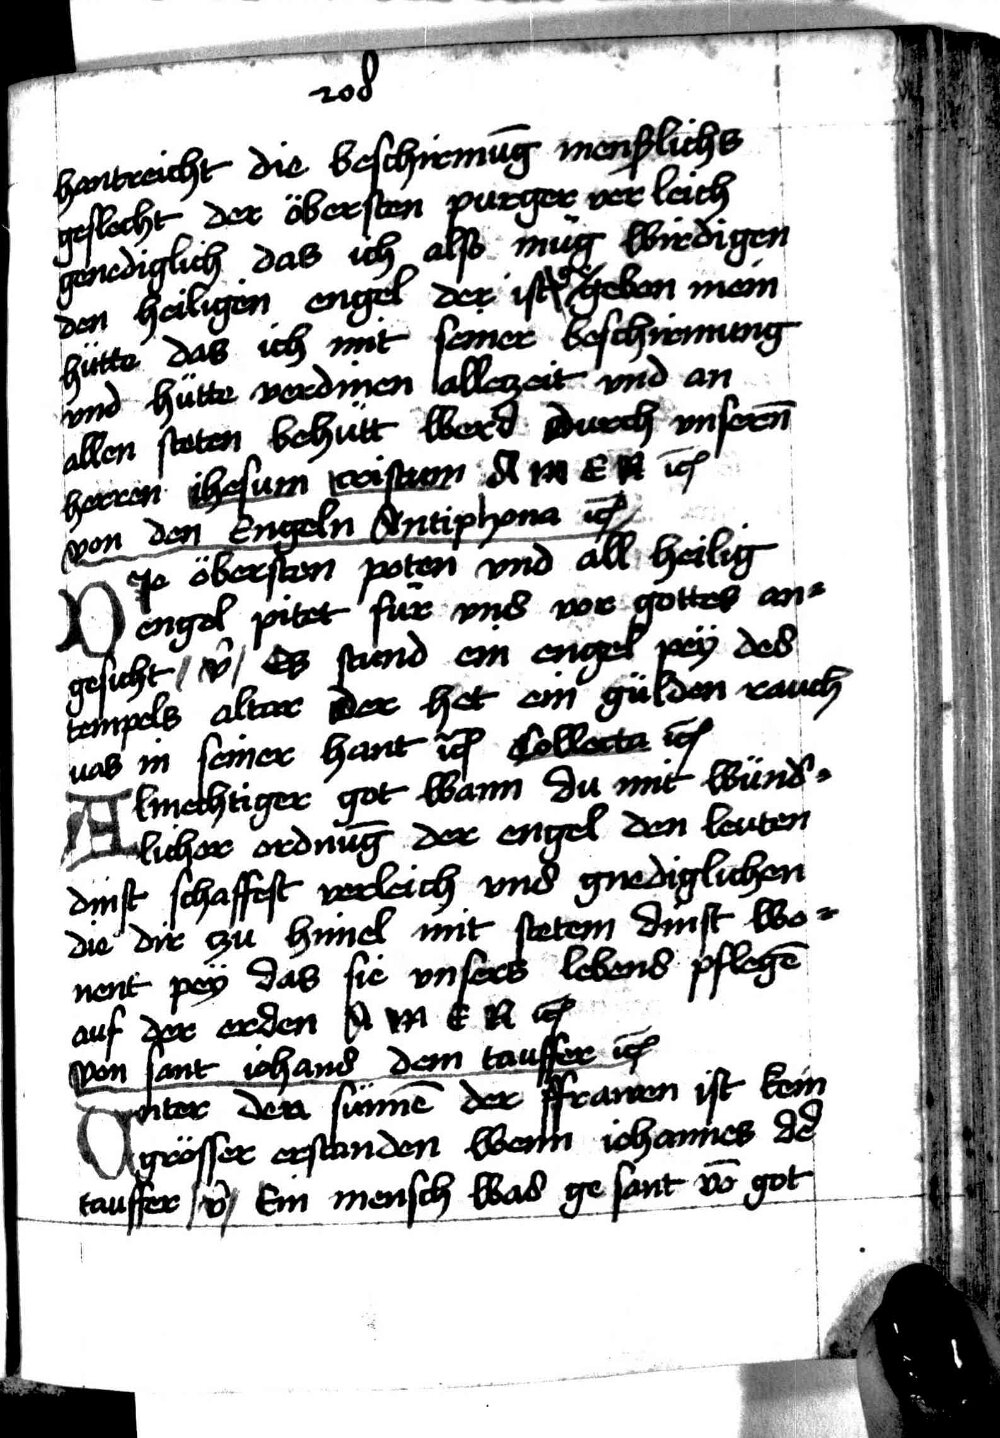 208
hantreicht die beschirmūg menschlichs
geslecht der öbersten purger ver leich
genediglich das ich also müg wirdigen
den heiligen engel der ist geben mein
hütte das ich mit seiner beschirmung
vnd hütte verdinen allezeit vnd an
allen steten behütt werd durch vnsern̄
herren ihesum cristum A M E N
von den Engeln Antiphona
DJe öbersten poten vnd all heilig
engel pitet für vns vor gottes an=
gesicht / v̄ / Es stund ein engel peÿ des
tempels altar der het ein gülden rauch
uas in seiner hant Collecta
Almechtiger got wann du mit wünd=
licher ordnūg der engel den leuten
dinst schaffest verleich vns gnediglichen
die dir zu himel mit stetem dinst wo=
nent peÿ das sie vnsers lebens pflegē
auf der erden A M E N
von sant iohans dem tauffer
Vnter den sünnē der ffrawen ist kein
grösser erstanden wenn iohannes der
tauffer / v̄ / Ein mensch was ge sant vō got